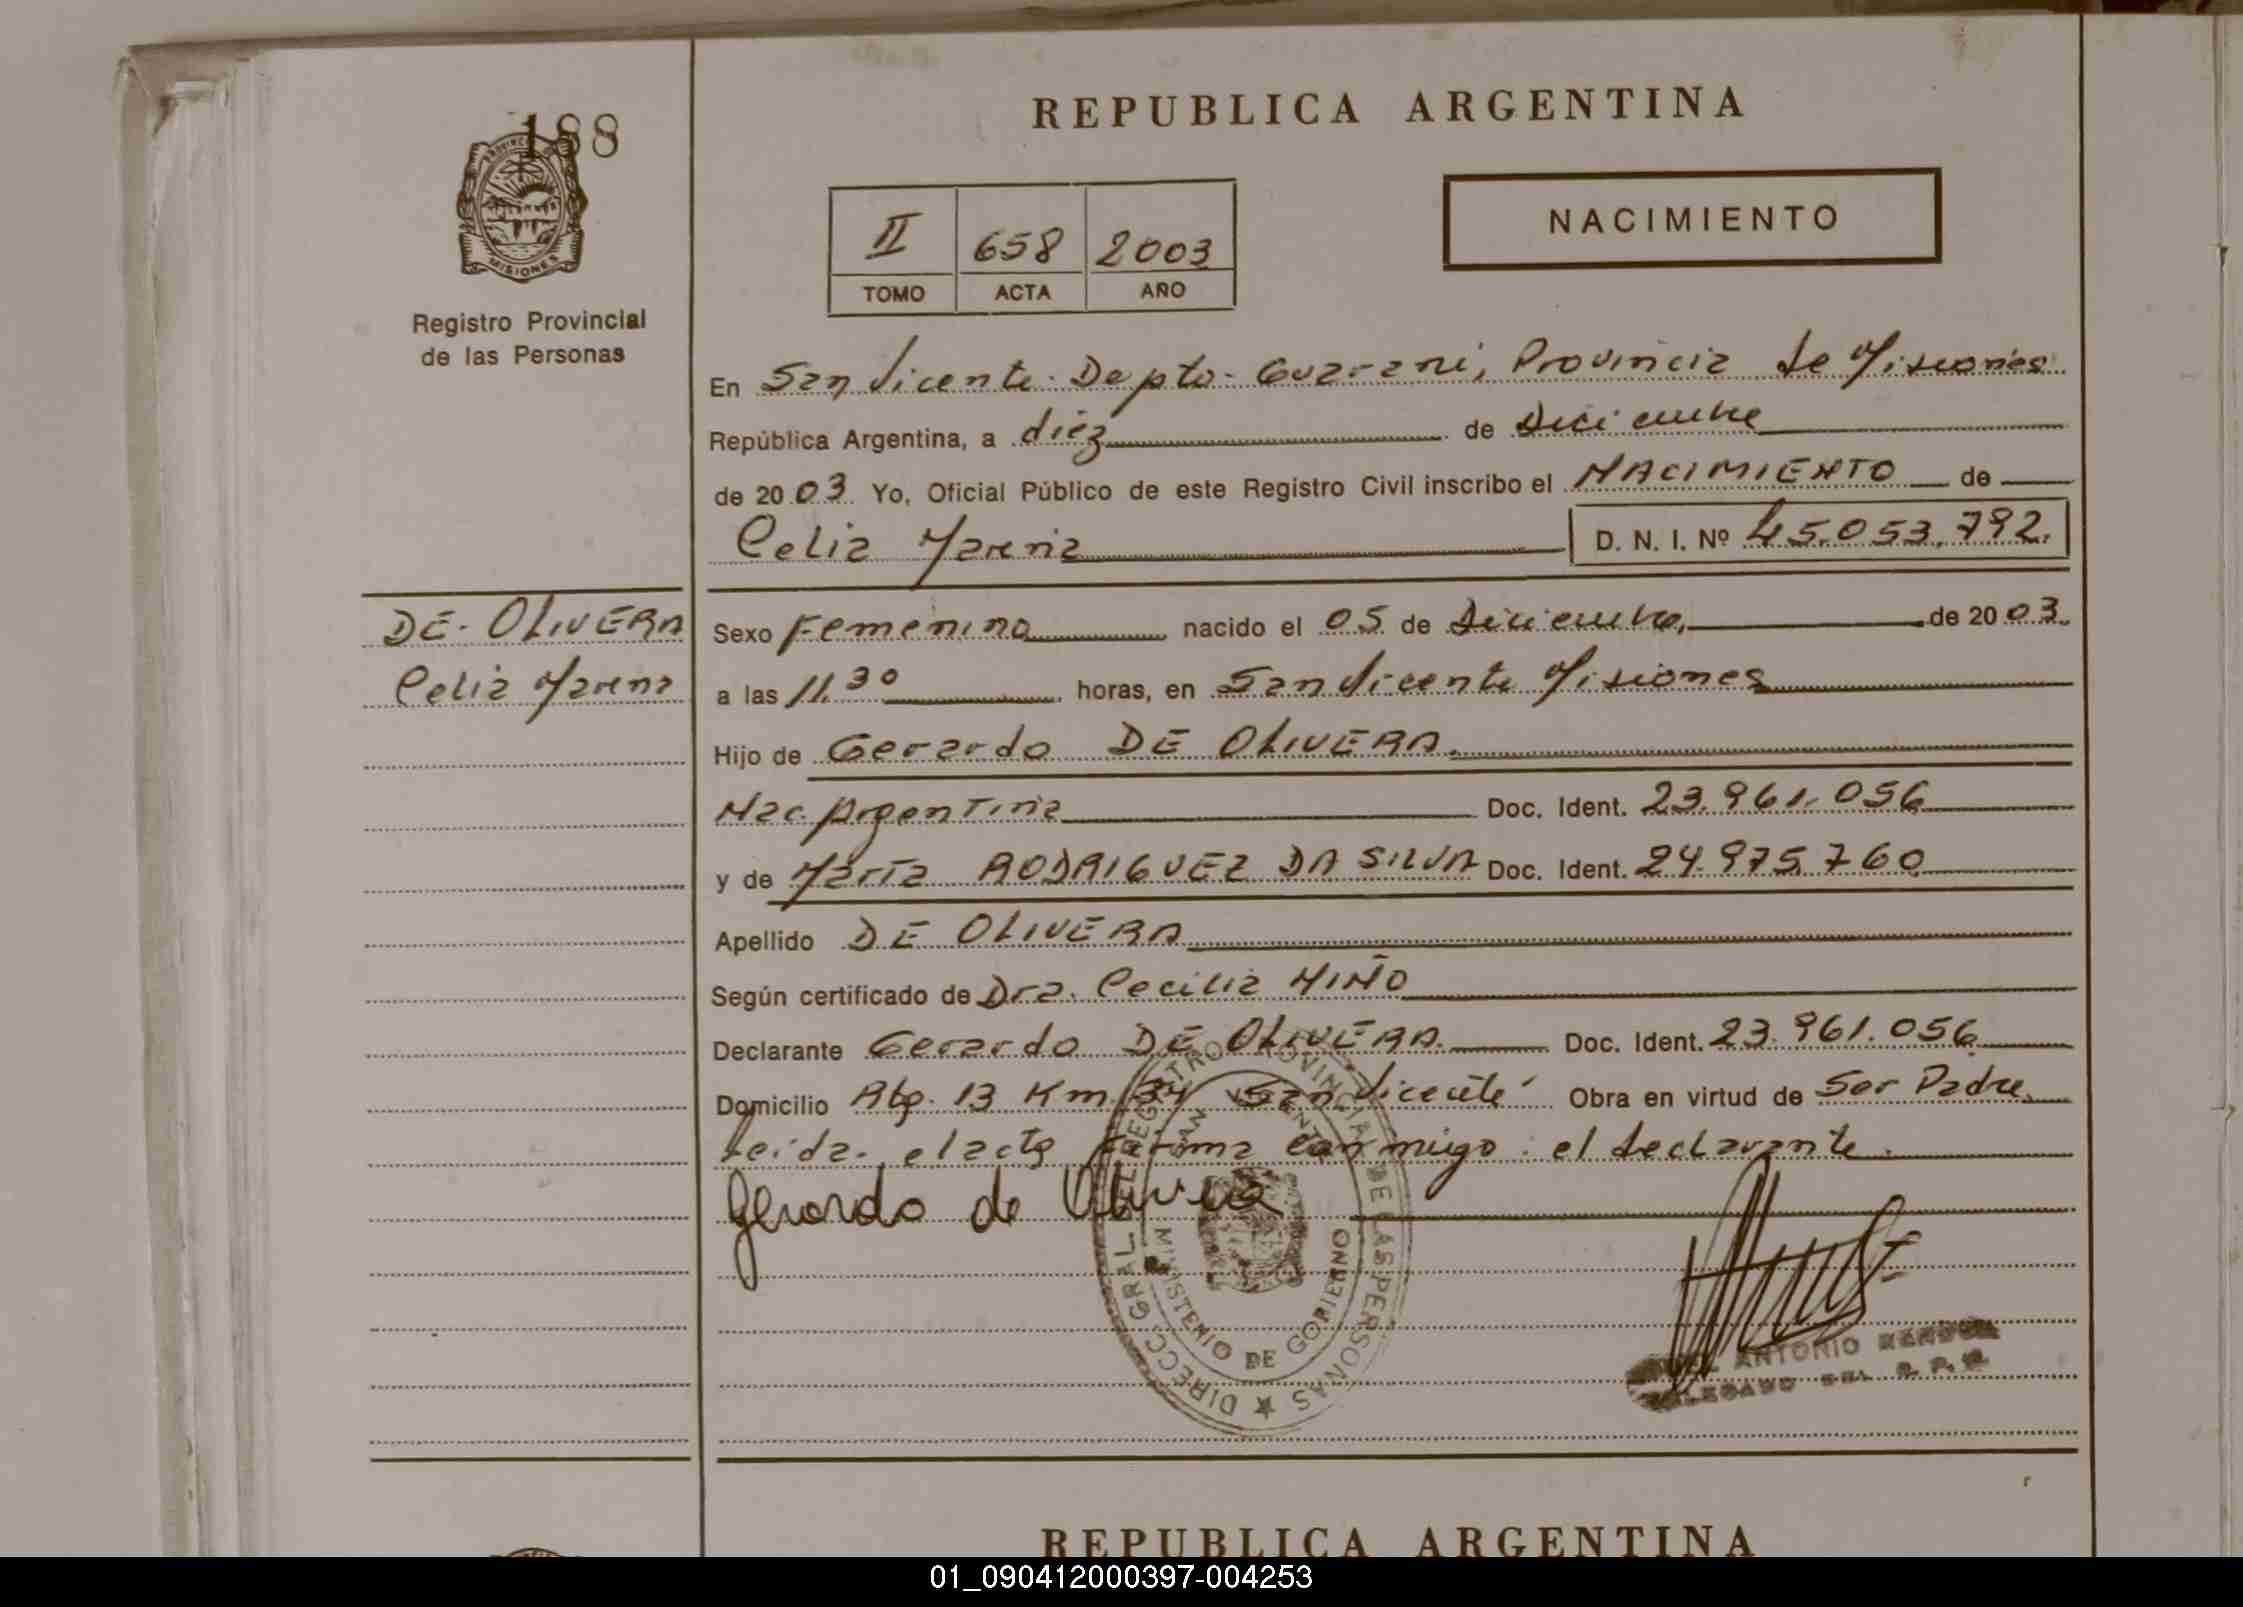 188
PROVINCIA DE
MISIONES
Registro Provincial
de las Personas
REPUBLICA ARGENTINA
II 658 2003
TOMO ACTA AÑO
NACIMIENTO
En San Vicente - Depto - Guarani, Provincia de Misiones
República Argentina, a diez de Diciembre
de 2003 Yo, Oficial Público de este Registro Civil inscribo el NACIMIENTO de
Celia D. N. I. Nº 45.053.792.
DE OLIVERA
Celia
Sexo Femenino nacido el 05 de Diciembre, de 2003.
a las 11.30 horas, en San Vicente Misiones
Hijo de Gerardo DE OLIVERA.
Nac. Argentina Doc. Ident. 23.961.056
y de María RODRIGUEZ DA SILVA Doc. Ident. 24.975.760
Apellido DE OLIVERA
Según certificado de Dra. Cecilia MIÑO
Declarante Gerardo DE OLIVERA. Doc. Ident. 23.961.056
Domicilio Km. 34 San Vicente Obra en virtud de Ser Padre.
Leida el acta firma conmigo el declarante.
Gerardo de Olivera
DIRECC. GRAL. DEL REGISTRO PROVINCIAL DE LAS PERSONAS
SAN VICENTE
MINISTERIO DE GOBIERNO
ANTONIO
DELEGADO DEL R. P. P.
REPUBLICA ARGENTINA
01_090412000397-004253